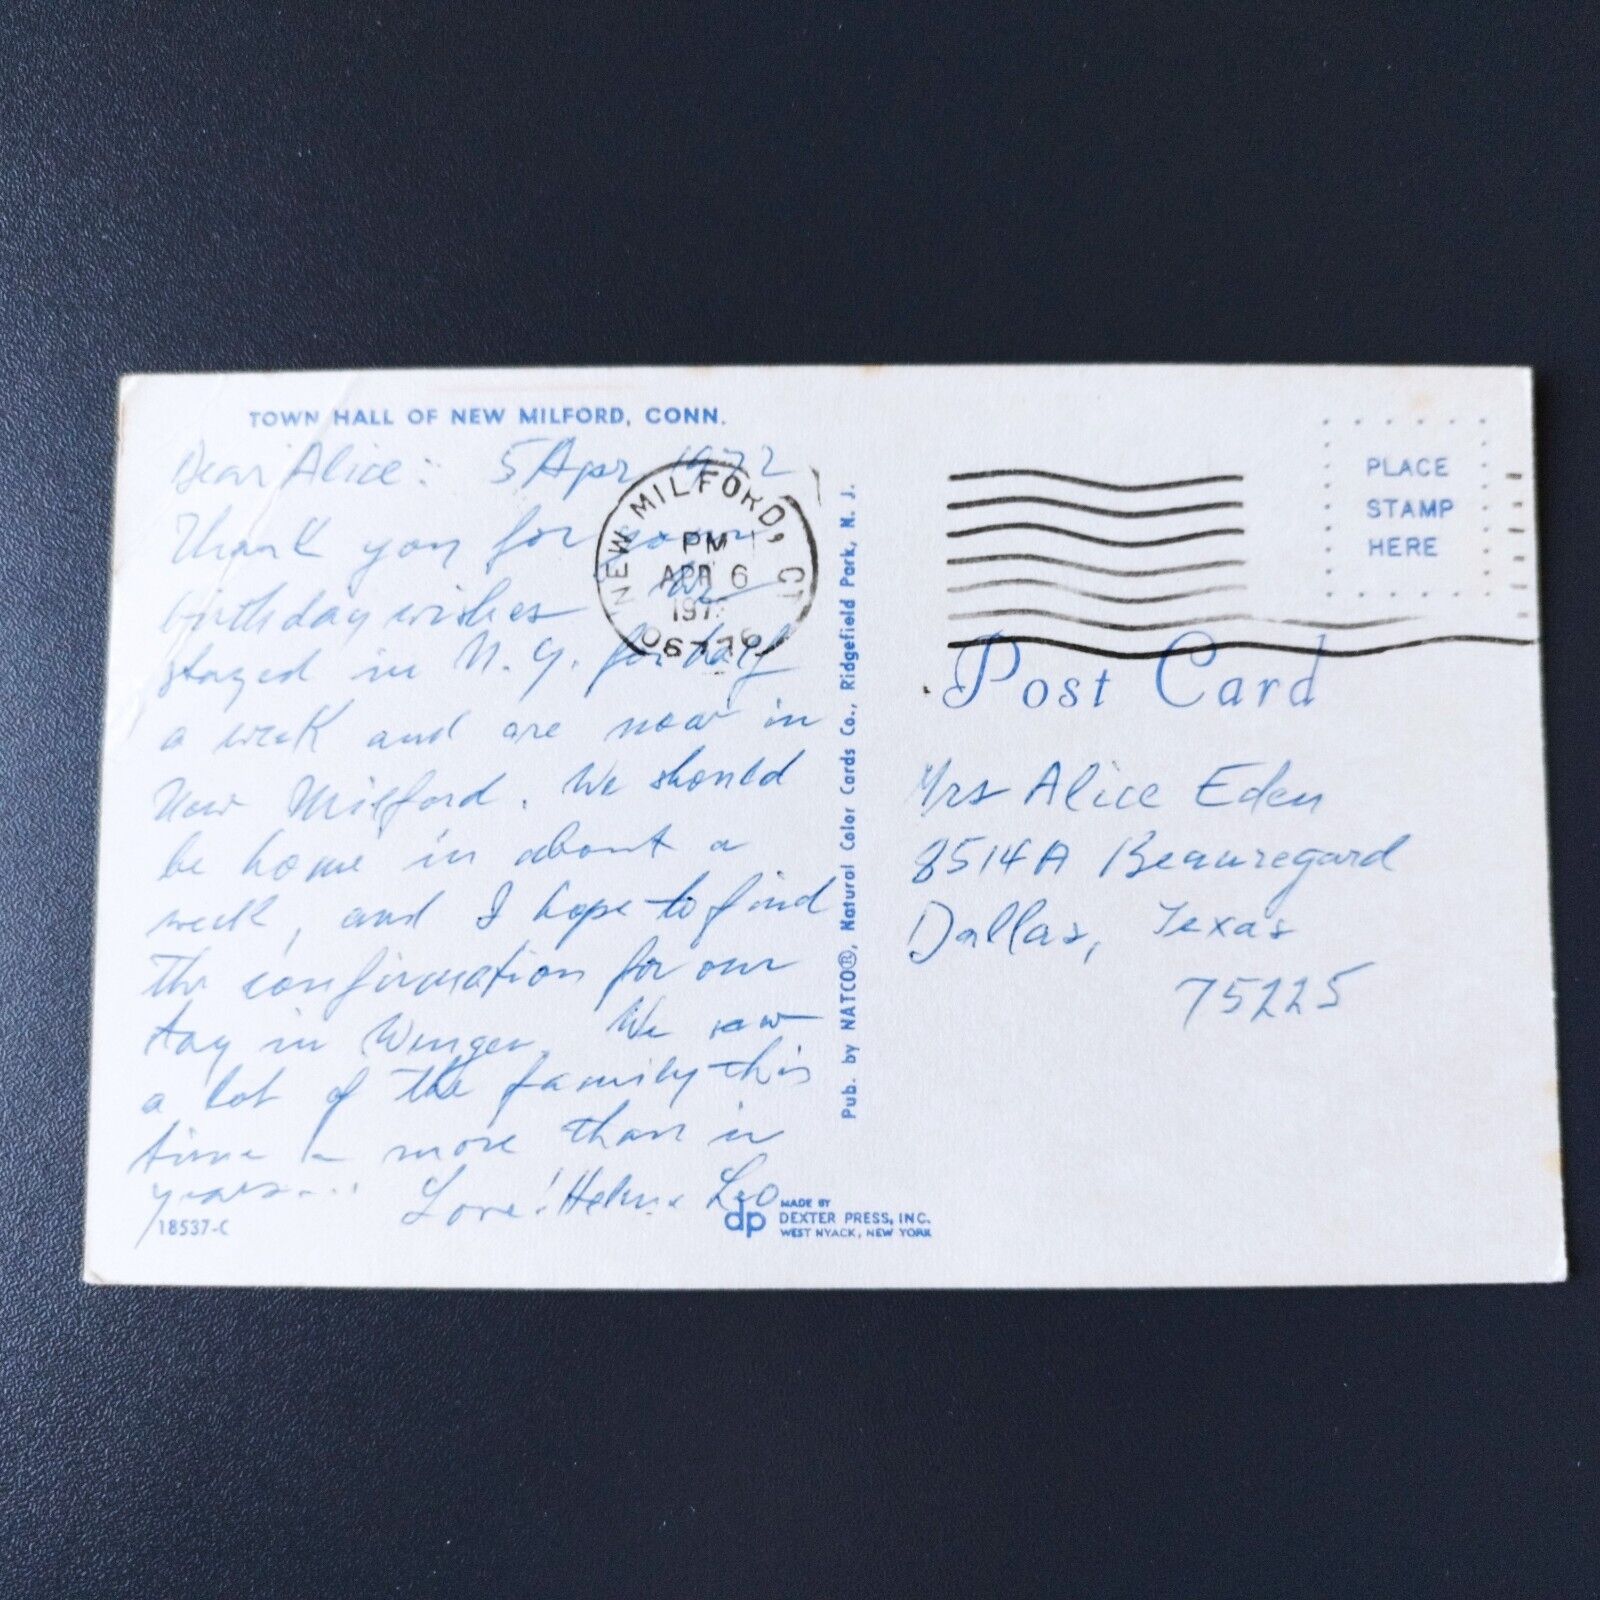 TOWN HALL OF NEW MILFORD, CONN.
Dear Alice: 5 Apr 1972
Thank you for your
birthday wishes We
stayed in N.Y. for half
a week and are now in
New Milford. We should
be home in about a
week, and I hope to find
the confirmation for our
stay in Wengen. We saw
a lot of the family this
time – more than in
years... Love! Helen & Leo
18537-C
NEW MILFORD, CT
PM
APR 6
197
06776
Pub. by NATCO®, Natural Color Cards Co., Ridgefield Park, N. J.
dp MADE BY
DEXTER PRESS, INC.
WEST NYACK, NEW YORK
PLACE
STAMP
HERE
Post Card
Mrs Alice Eden
8514A Beauregard
Dallas, Texas
75225